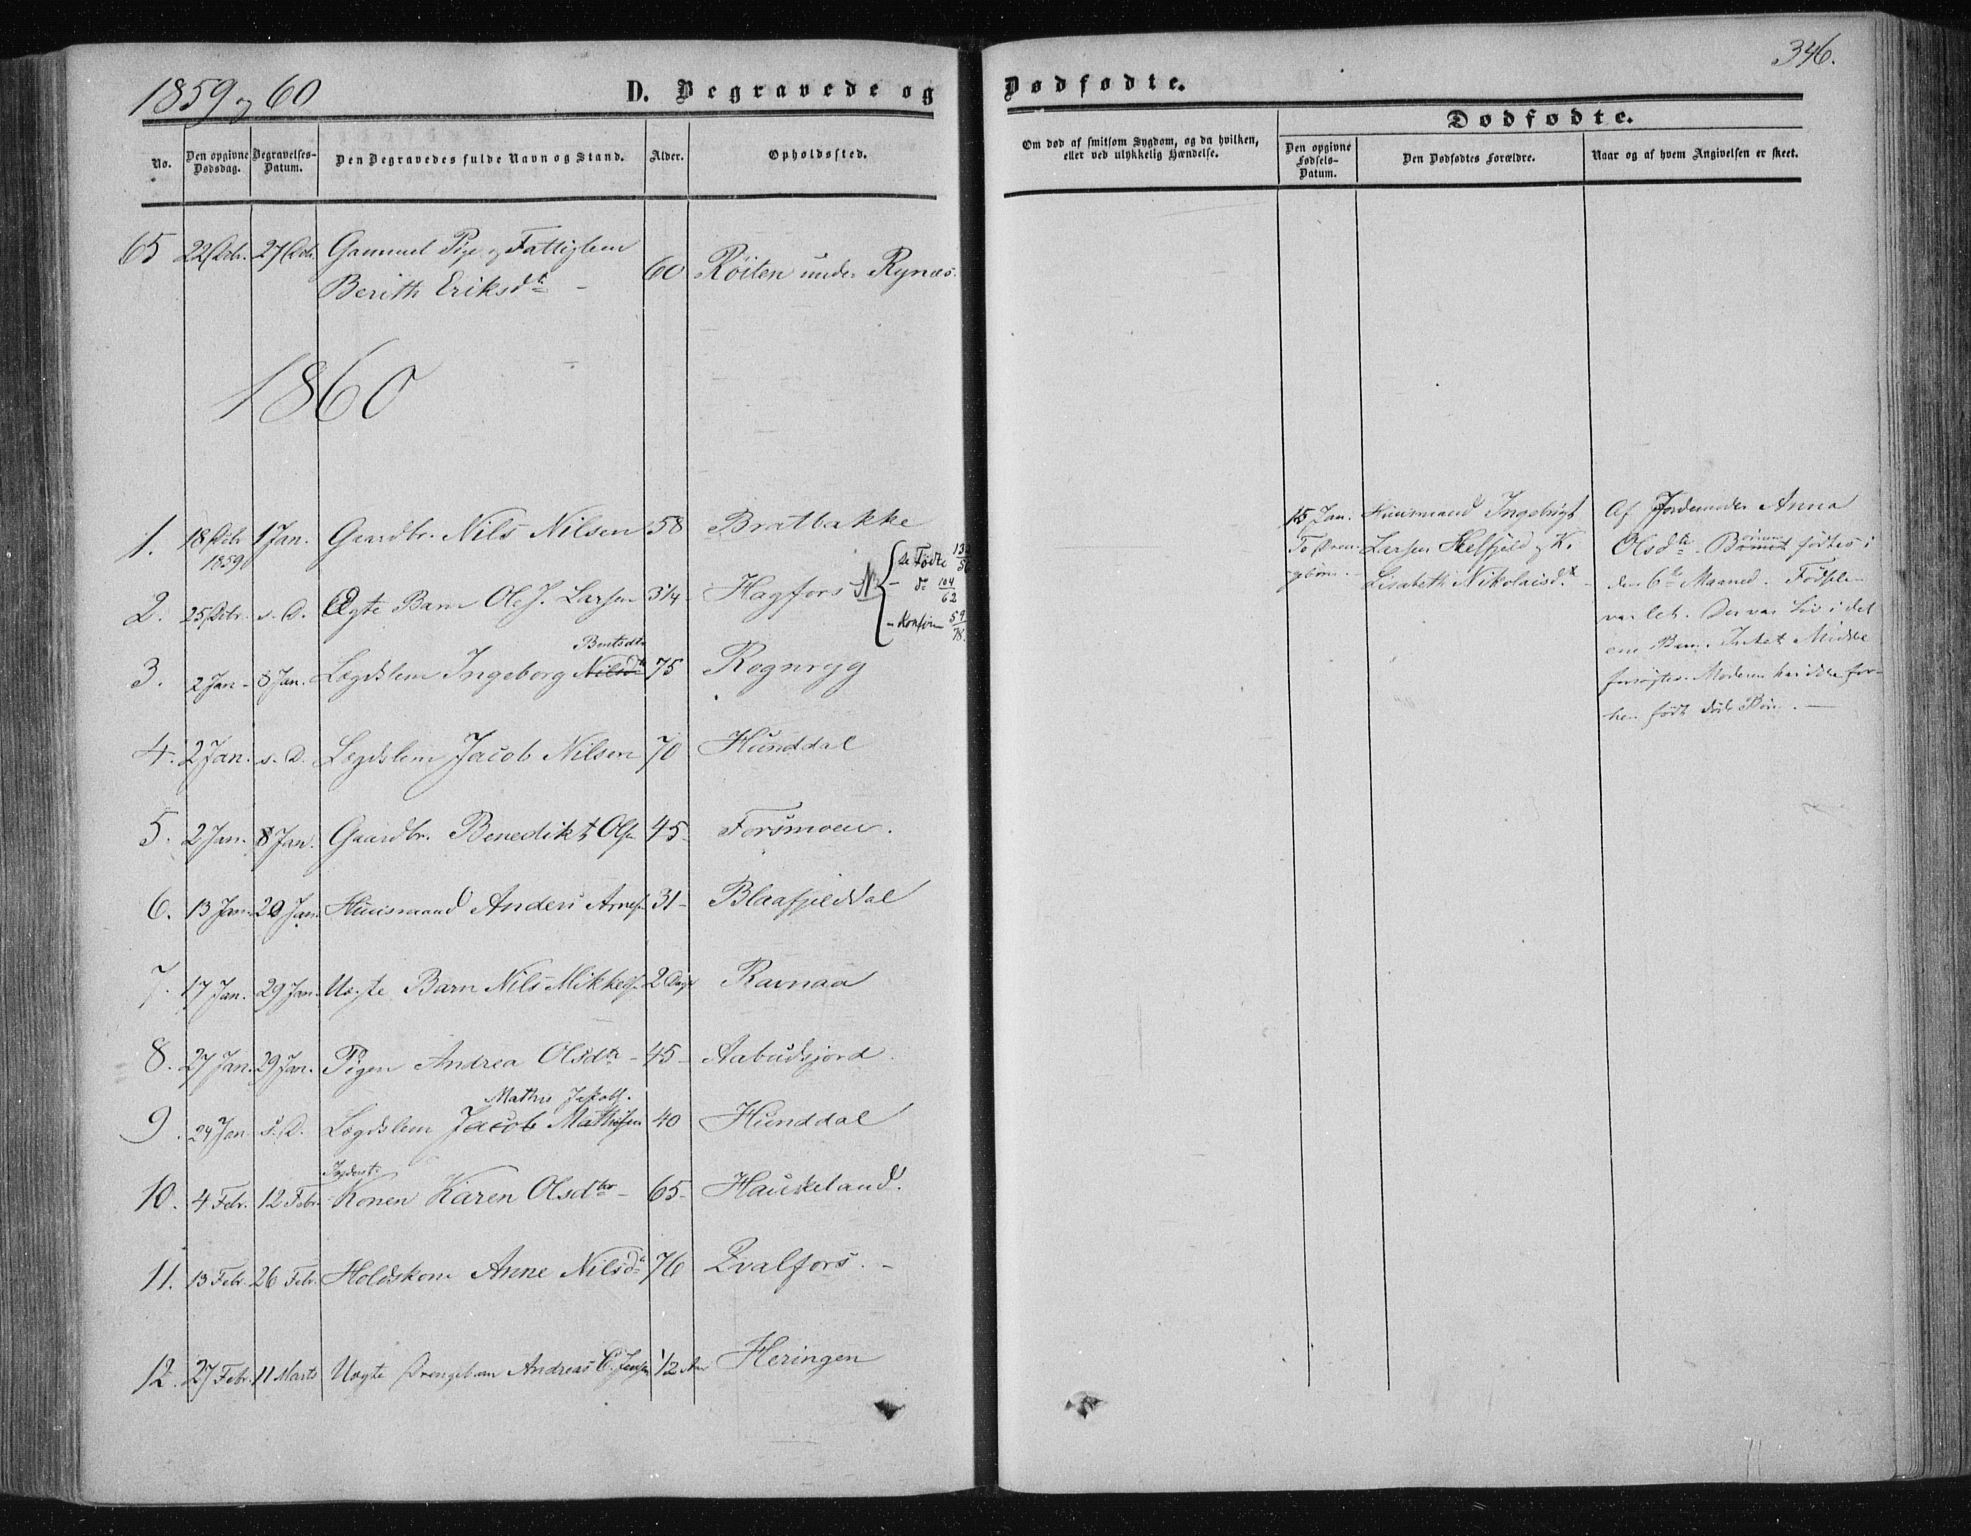 1859 og 60
D. Begravede og
No.
Den opgivne Dødsdag.
Begravelses-Datum.
Den Begravedes fulde Navn og Stand.
Alder.
Opholdssted.
65 22 Dcbr. 27 Dcb. Gammel Pige og Fattiglem
Berith Eriksdtr 60 Röiten under Rynæs.
1860
1. 18 Dcbr 1 Jan. Gaardbr. Nils Nilsen 58 Bratbakke
1859
2. 25 Dcbr. s. D. Ægte Barn Ole J. Larsen 3/4 Hagfors NB
se Fødte
do 104/62
Konfirm 59/78
3. 2 Jan 8 Jan. Lægdslem Ingeborg Nilsdtr 75 Rognryg
Bentsdtr
4. 2 Jan. s. D. Lægdslem Jacob Nilsen 70 Hunddal
5. 2 Jan. 8 Jan. Gaardbr. Benedikt Ols. 45 Forsmoen.
6. 13 Jan. 20 Jan. Huusmand Anders Arnes. 31 Blaafjelddal
7. 17 Jan. 29 Jan. Uægte Barn Nils Mikkels. 2 Dage Ravnaa
8. 27 Jan. 29 Jan. Pigen Andrea Olsdtr 45 Aabudsjord.
Mathis Jakobs.
9. 24 Jan s. D. Lægdslem Jacob Mathisen 40 Hunddal
Inderst
10. 4 Febr. 12 Febr. Konen Karen Olsdtr 65 Haukeland.
11. 13 Febr. 26 Febr. Holdskone Anne Nilsdtr 76 Qvalfors.
12. 27 Febr. 11 Marts Uægte Drengebarn Andreas C. Jensen 1/2 Aar Heringen
346.
Dødfødte.
Om død af smitsom Sygdom, og da hvilken,
eller ved ulykkelig Hændelse.
Dødfødte.
Den opgivne Fødsels-Datum.
Den Dødfødtes Forældre.
Naar og af hvem Angivelsen er skeet.
15 Jan. Huusmand Ingebrigt Af Jordemoder Anna
To Dren- Larsen Helfjeld og K. Olsdtr Børnene fødtes i
gebørn. Lisabeth Nikolaisdtr den 6te Maaned. Fødslen
var let. Der var Liv i det
ene Barn. Intet Middel
forsøgtes. Moderen har ikke for-
hen født døde Børn.